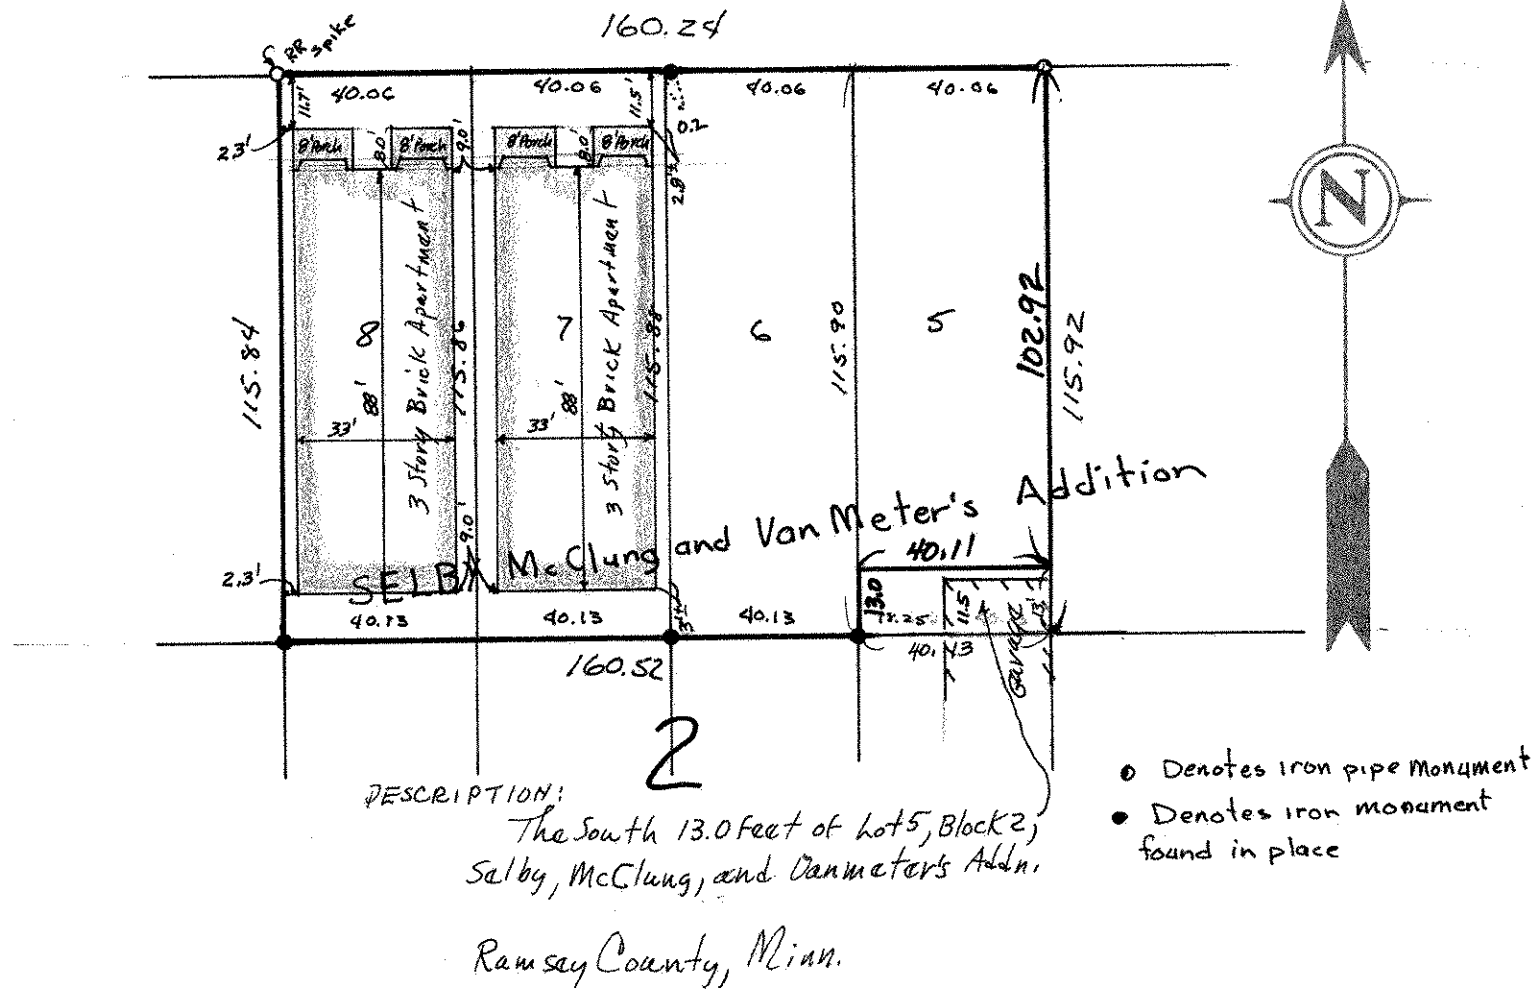 160.24
RR Spike
40.06 40.06 40.06 40.06
11.7' 11.5'
0.2
2.3' 8'Porch 8.0 8'Porch 9.0' 8'Porch 8.0 8'Porch
2.8'±
N
115.84 8 88' 33' 3 Story Brick Apartment 115.86
7 88' 33' 3 Story Brick Apartment 115.88
6 115.90 5 102.92 115.92
SELB McClung and Van Meter's Addition
40.11
9.0'
2.3'
13.0 18.25 11.5 Garage 13'
40.13 40.13 3'± 40.13 40.13
160.52
2
DESCRIPTION:
The South 13.0 feet of Lot 5, Block 2,
Selby, McClung, and Vanmeter's Addn.
Ramsey County, Minn.
Denotes iron pipe monument
Denotes iron monument
found in place